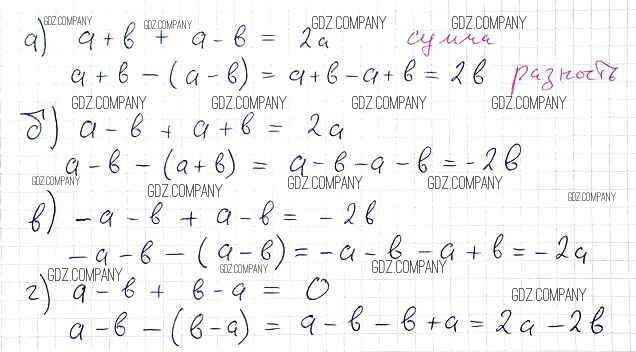 а) a + b + a - b = 2a сумма
a + b - (a - b) = a + b - a + b = 2b разность
б) a - b + a + b = 2a
a - b - (a + b) = a - b - a - b = -2b
в) -a - b + a - b = -2b
-a - b - (a - b) = -a - b - a + b = -2a
г) a - b + b - a = 0
a - b - (b - a) = a - b - b + a = 2a - 2b
GDZ.COMPANY GDZ.COMPANY GDZ.COMPANY GDZ.COMPANY
GDZ.COMPANY GDZ.COMPANY GDZ.COMPANY GDZ.COMPANY
GDZ.COMPANY GDZ.COMPANY GDZ.COMPANY GDZ.COMPANY GDZ.COMPANY
GDZ.COMPANY GDZ.COMPANY GDZ.COMPANY GDZ.COMPANY